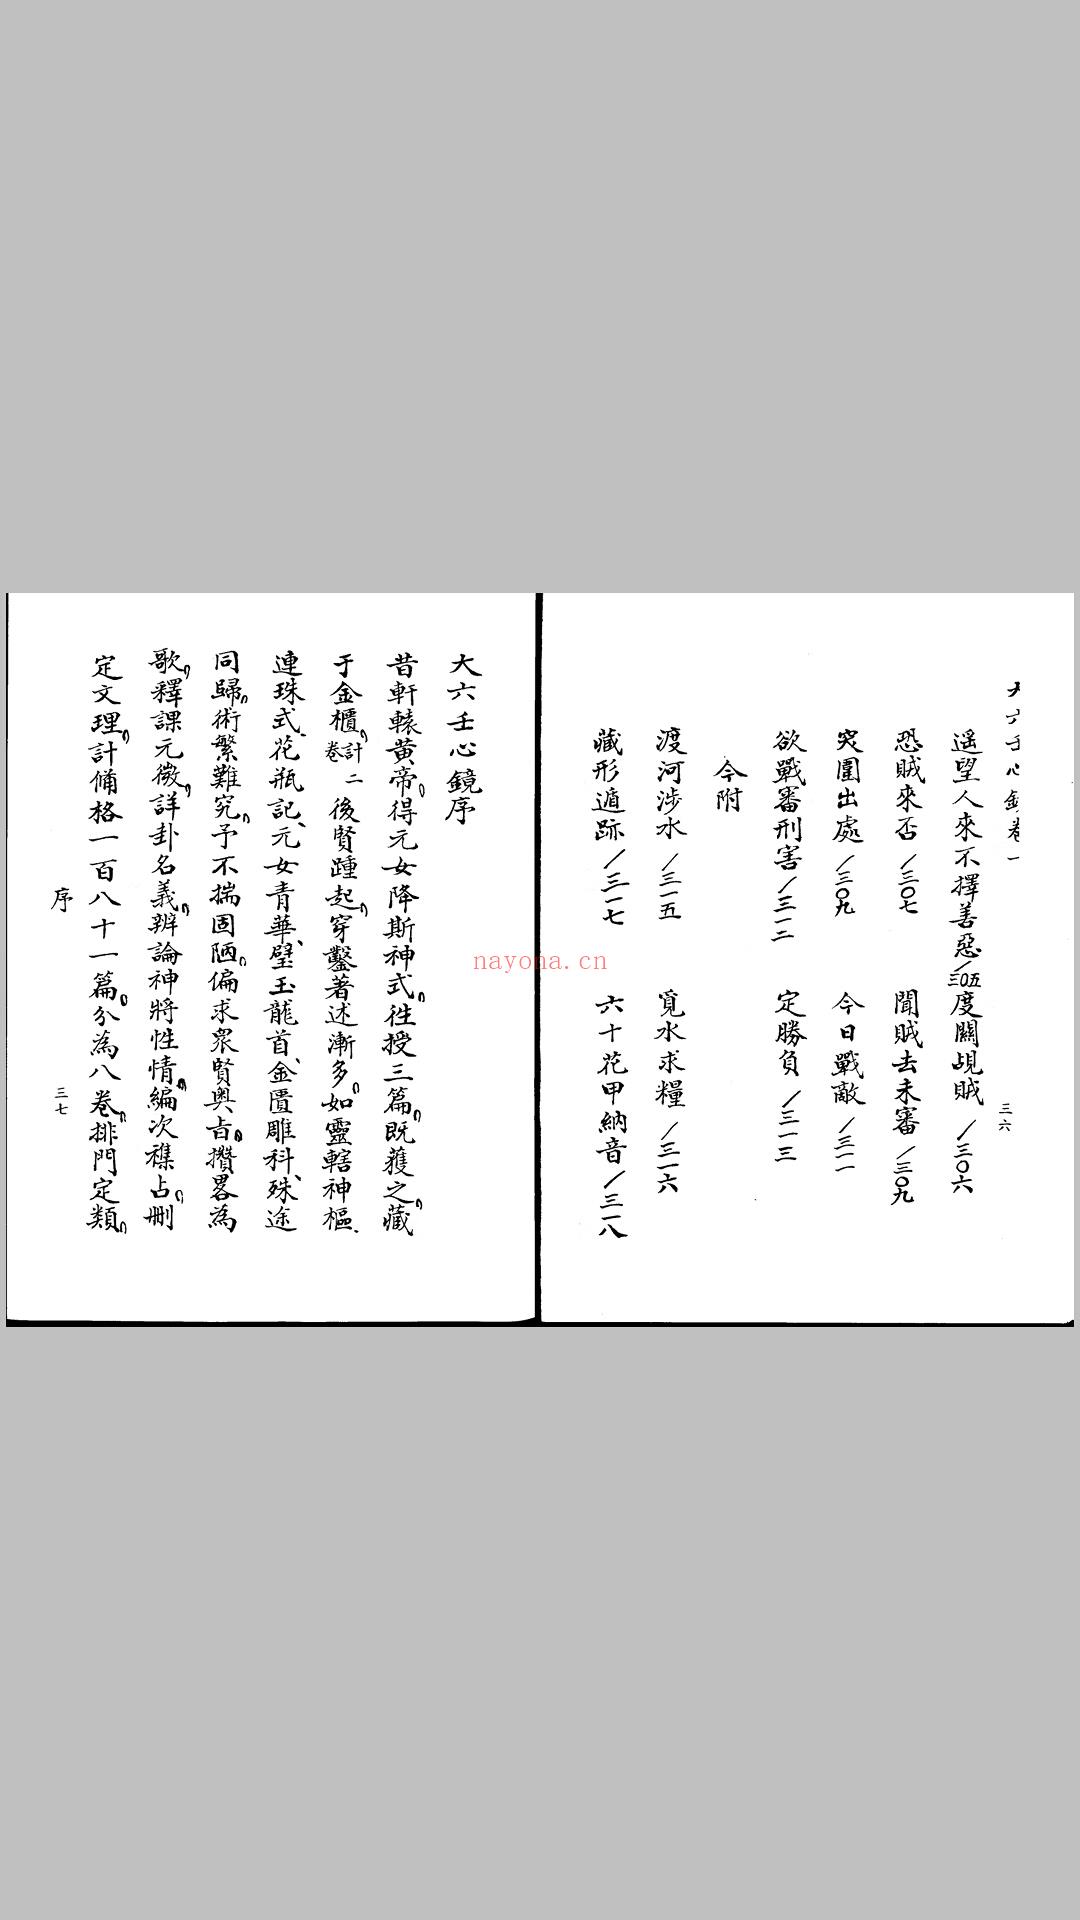 大六壬心鏡卷一
遥望人來不擇善惡/三〇五 度關覘賊/三〇六
恐賊來否/三〇七 聞賊去未審/三〇九
突圍出處/三〇九 今日戰敵/三一一
欲戰審刑害/三一二 定勝負/三一三
今附
渡河涉水/三一五 覓水求糧/三一六
藏形遁跡/三一七 六十花甲納音/三一八
三六
大六壬心鏡序
昔軒轅黃帝，得元女降斯神式，徃授三篇，既蒦之，藏
于金櫃，計二卷 後賢踵起，穿鑿著述漸多，如靈轄神樞、
連珠式、花瓶記、元女青華、璧玉龍首、金匱雕科、殊途
同歸，術繁難究，予不揣固陋，偏求衆賢奧旨，攢畧為
歌，釋課元微，詳卦名義，辨論神將性情，編次襍占，刪
定文理，計俻格一百八十一篇，分為八卷，排門定類，
序
三七
nayona.cn